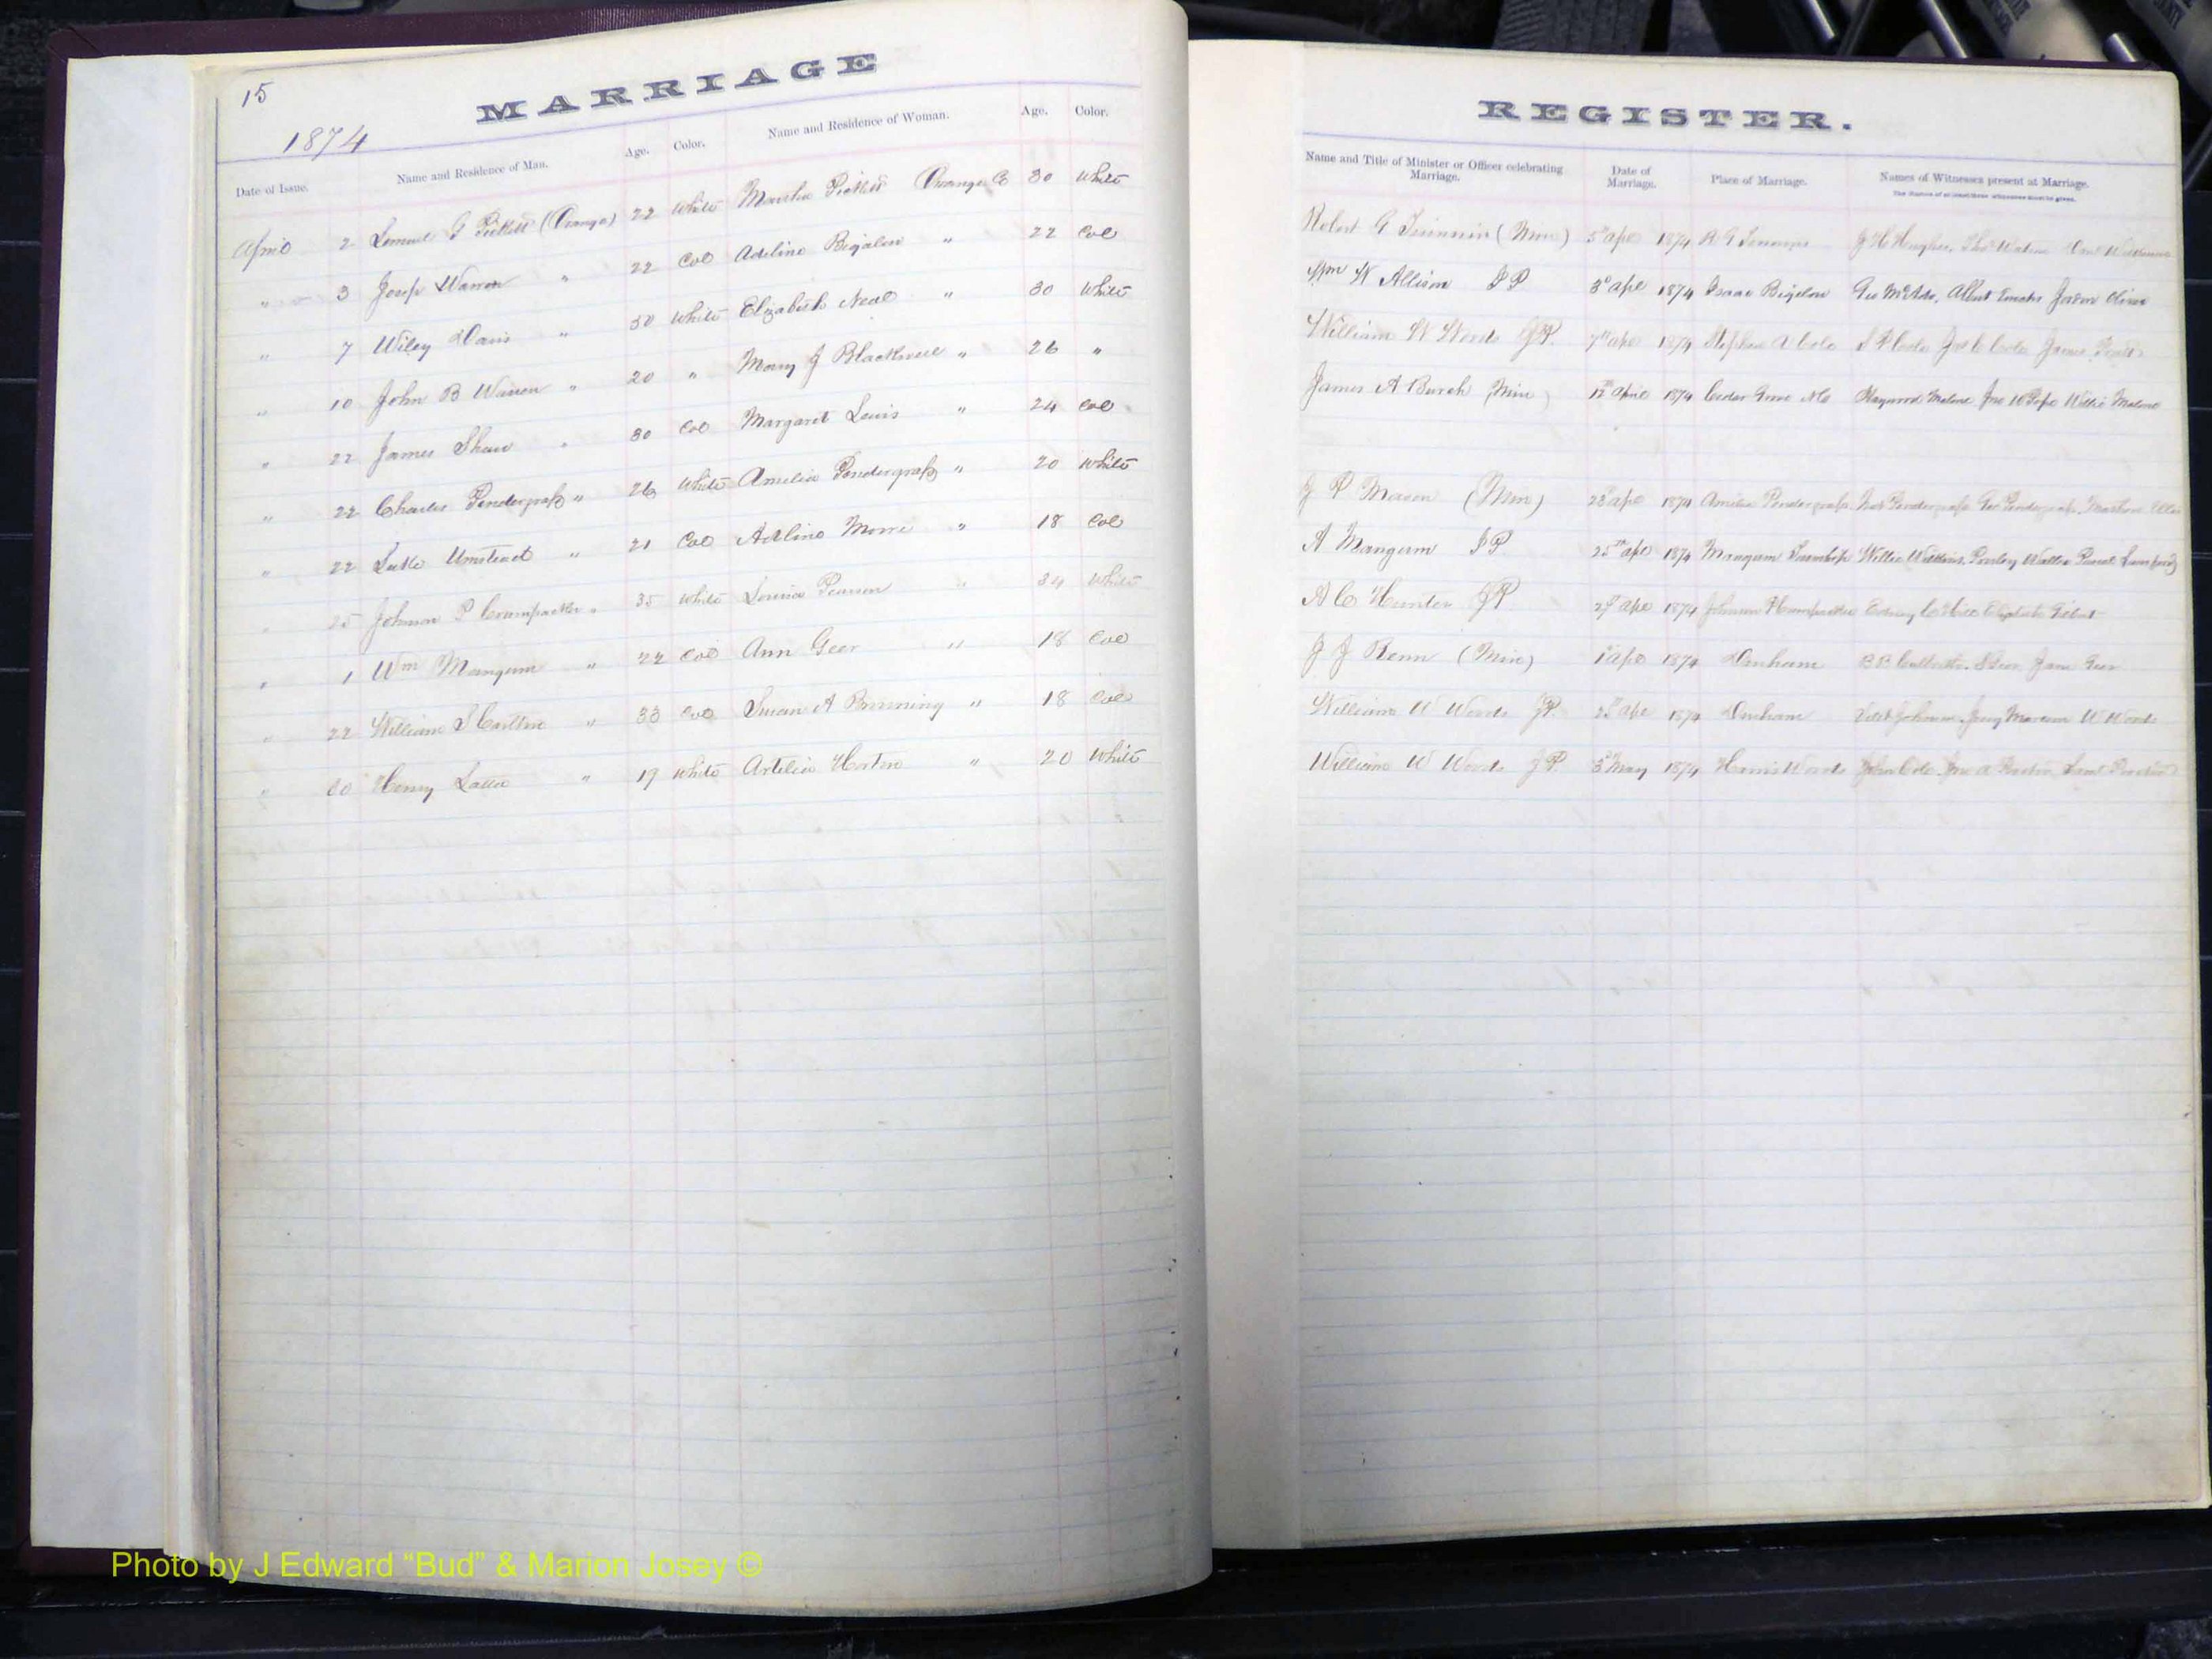 15
MARRIAGE
1874
Date of Issue. Name and Residence of Man. Age. Color. Name and Residence of Woman. Age. Color.
April 2 Lemuel G Pickett (Orange) 22 White Martha Pickett Orange Co 30 White
" 3 Josep Warren " 22 Col Adeline Bigalow " 22 Col
" 7 Wiley Davis " 50 White Elizabeth Neal " 30 White
" 10 John B Warren " 20 " Mary J Blackwell " 26 "
" 22 James Shaw " 30 Col Margaret Lewis " 24 Col
" 22 Charles Pendergraß " 26 White Amelia Pendergraß " 20 White
" 22 Luke Umstead " 21 Col Adline Moore " 18 Col
" 25 Johnson P Crumpacker " 35 White Louisa Pearson " 34 White
" 1 Wm Mangum " 22 Col Ann Geer " 18 Col
" 22 William S Carlton " 33 Col Susan A Browning " 18 Col
" 20 Henry " 19 White Artelia Horton " 20 White
REGISTER.
Name and Title of Minister or Officer celebrating Marriage. Date of Marriage. Place of Marriage. Names of Witnesses present at Marriage.
The Names of at least three witnesses must be given.
Robert G (Min) 5th Apl 1874 R G J H Hughes, Thos
Wm W Allison JP 3d Apl 1874 Isaac Bigelow Geo McAdo, Albert Jordon Oliver
William W Woods JP. 7th Apl 1874 Stephen A Cole S P Cole Jno C Cole James
James A Burch (Min) 12th April 1874 Cedar Grove NC Haywood Malone Jno Pope Willie Malone
J P Mason (Min) 23d Apl 1874 Amelia Pendergraß Pendergraß Geo Pendergraß,
A Mangum JP 25th Apl 1874 Mangum Township Willie Watkins, Presley Walker
A C Hunter JP 1874 Johnson
J J Renn (Min) 1st Apl 1874 Durham S Geer Jane Geer
William W Woods JP. 1874 Durham Johnson, W Woods
William W Woods JP. 3d May 1874 Harris Woods John Cole, Jno A
Photo by J Edward “Bud” & Marion Josey ©